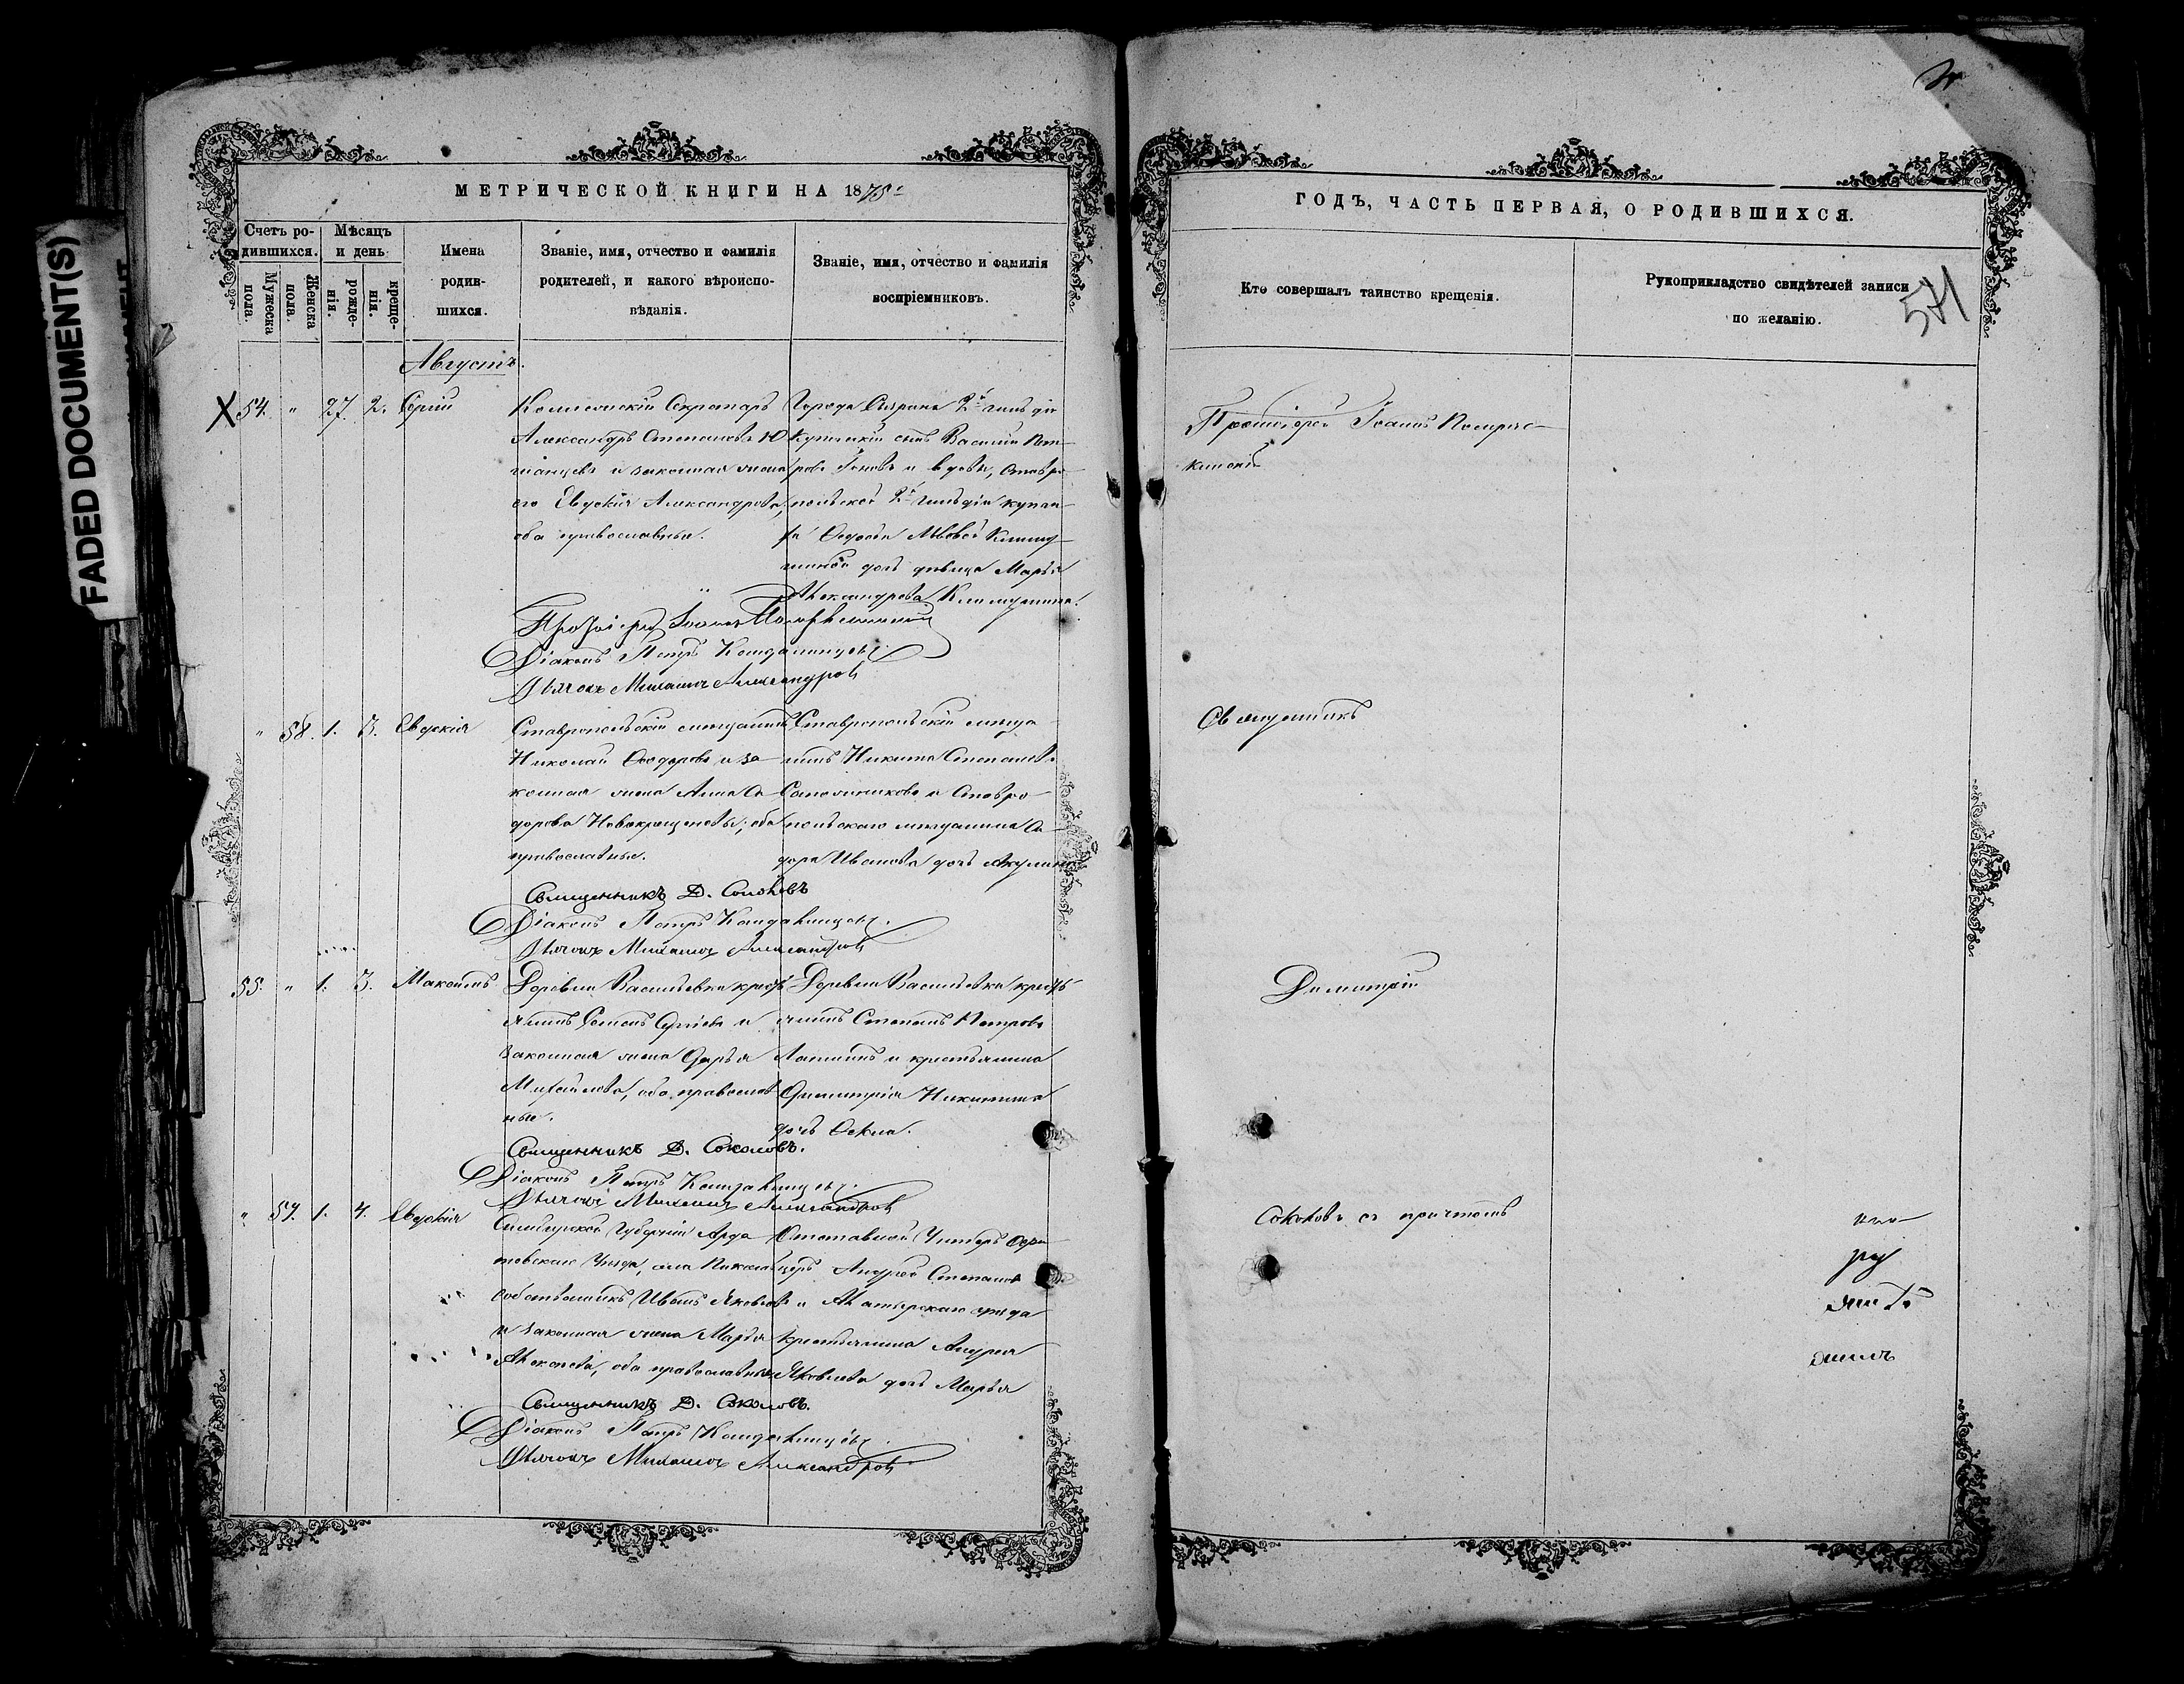 FADED DOCUMENT(S)
МЕТРИЧЕСКОЙ КНИГИ НА 1875
Счетъ ро-
дившихся.
Мужеска
пола.
Женска
пола.
Мѣсяцъ
и день
рожде-
нія.
креще-
нія.
Имена
родив-
шихся.
Званіе, имя, отчество и фамилія
родителей, и какого вѣроиспо-
вѣданія.
Званіе, имя, отчество и фамилія
воспріемниковъ.
Августъ.
54. " 27. 2. Сергій
Секретарь
Александръ Степановъ Ю
и законная жена
его Евдокія Александрова,
оба православные.
Города Сызрана 2й гильдіи
Купеческій сынъ Василій Пет-
ровъ и вдовы, Ставро
польской 2й гильдіи купчи
хи Львовой
дочь дѣвица Марья
Александрова
Протоіерей Іоаннъ
Діаконъ Петръ
Дьячокъ Михаилъ Александровъ
" 58. 1. 3. Евдокія
Ставропольскій мѣщанинъ
Николай Ѳеодоровъ и за
конная жена Анна Ѳе
дорова Новокрещеновы; оба
православные.
Ставропольскій мѣща
нинъ Никита Степановъ
Сапожниковъ и Ставро
польскаго мѣщанина Ѳе
дора Иванова дочь Акулина
Священникъ Д. Соколовъ
Діаконъ Петръ
Дьячокъ Михаилъ Александровъ
55. " 1. 3. Максимъ
Деревни Васильевки кресть
янинъ Семенъ Сергѣевъ и
законная жена Дарья
Михайлова, оба православ
ные.
Деревни Васильевки кресть
янинъ Степанъ Петровъ
и крестьянина
Димитрія Никитина
дочь Ѳекла.
Священникъ Д. Соколовъ.
Діаконъ Петръ
Дьячокъ Михаилъ Александровъ
" 59. 1. 4. Евдокія
Симбирской Губерніи Арда
товскаго Уѣзда, села
Собственникъ Иванъ Яковлевъ
и законная жена Марья
Алексѣева, оба православные
Отставной Унтеръ Офи
церъ Андрей Степановъ
и Алатырскаго уѣзда
Крестьянина Андрея
Яковлева дочь Марья
Священникъ Д. Соколовъ.
Діаконъ Петръ
Дьячокъ Михаилъ Александровъ
ГОДЪ, ЧАСТЬ ПЕРВАЯ, О РОДИВШИХСЯ.
Кто совершалъ таинство крещенія.
Рукоприкладство свидѣтелей записи
по желанію.
571
Протоіерей Іоаннъ
Священникъ
Димитрій
Соколовъ съ причтомъ